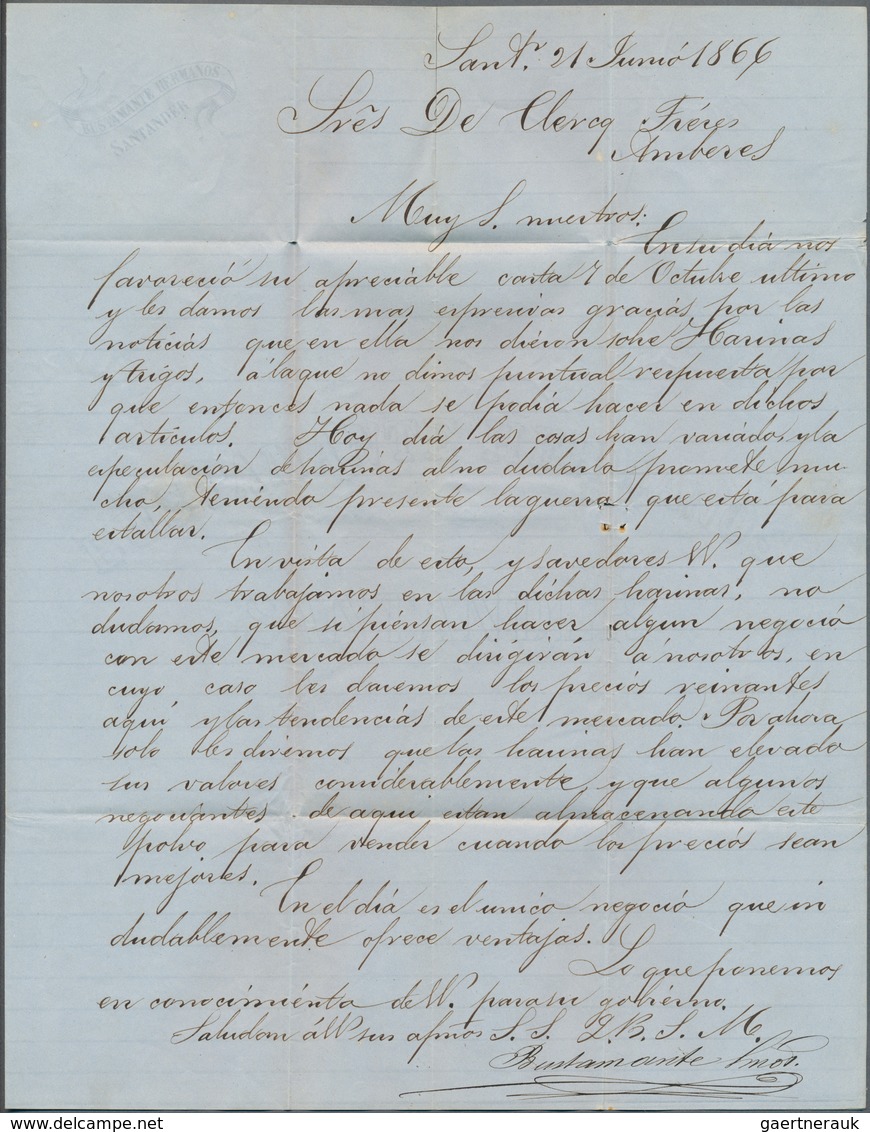 BUSTAMANTE HERMANOS
SANTANDER
Santr. 21 Junió 1866
Srēs De Clercq Fréres
Amberes
Muy S. nuestros:
En su diá nos
favoreció su apreciáble carta 7 de Octubre ultimo
y les damos las mas espresivas graciás por las
noticiás que en ella nos diéron sobre Harinas
y trigos, á la que no dimos puntual respuesta por
que entonces nada se podiá hacer en dichos
articulos. Hoy diá las cosas han variado, y la
especulación de harinas al no dudarlo promete mu-
cho, teniéndo presente la guerra que está para
estallar.
En vista de esto, y savedores VV. que
nosotros trabajamos en las dichas harinas, no
dudamos, que si piénsan hacer algun negoció
con este mercado se dirigirán á nosotros, en
cuyo caso les daremos los preciós reinantes
aqui y las tendenciás de este mercado. Por ahora
solo les diremos que las harinas han elevado
sus valores considerablemente y que algunos
negociantes de aqui estan almacenando este
polvo para vender cuando los preciós sean
mejores.
En el diá es el unico negoció que in
dudablemente ofrece ventajas.
Lo que ponemos
en conocimiénto de VV. para su gobiérno.
Saludan á VV sus afmos S. S. Q. B. S. M.
Bustamante Hnos.
gaertnerauk
delcampe.net